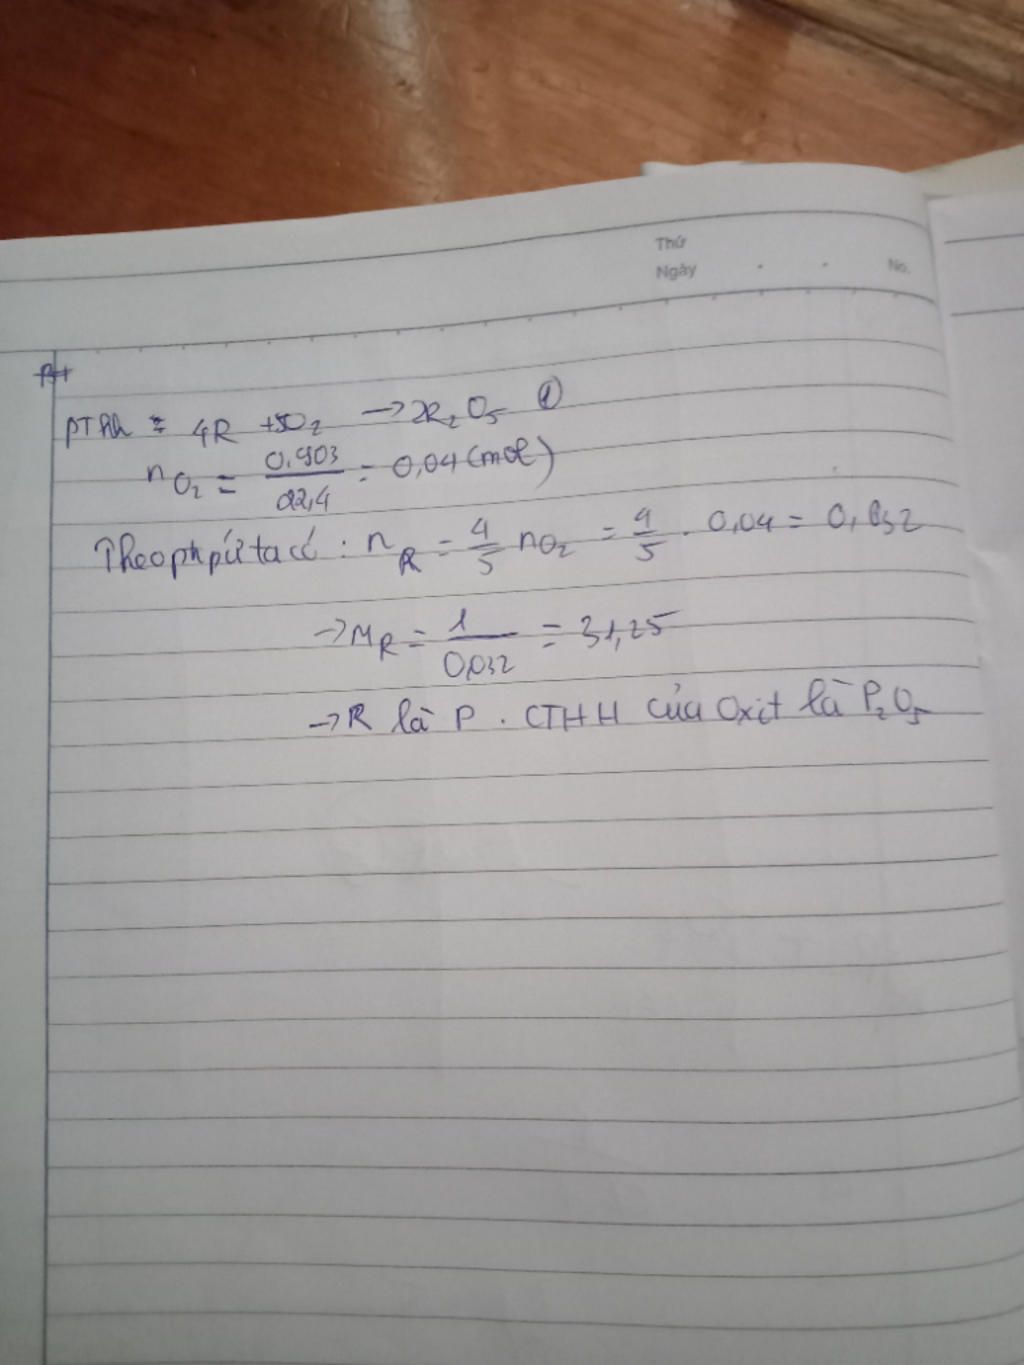 Thứ
Ngày . . No.
PTHh : 4R + 5O₂ → 2R₂O₅ ①
nO₂ = 0,903 / 22,4 = 0,04 (mol)
Theo ph pứ ta có : nR = 4/5 nO₂ = 4/5 . 0,04 = 0,032
→ MR = 1 / 0,032 = 31,25
→ R là P . CTHH của Oxit là P₂O₅